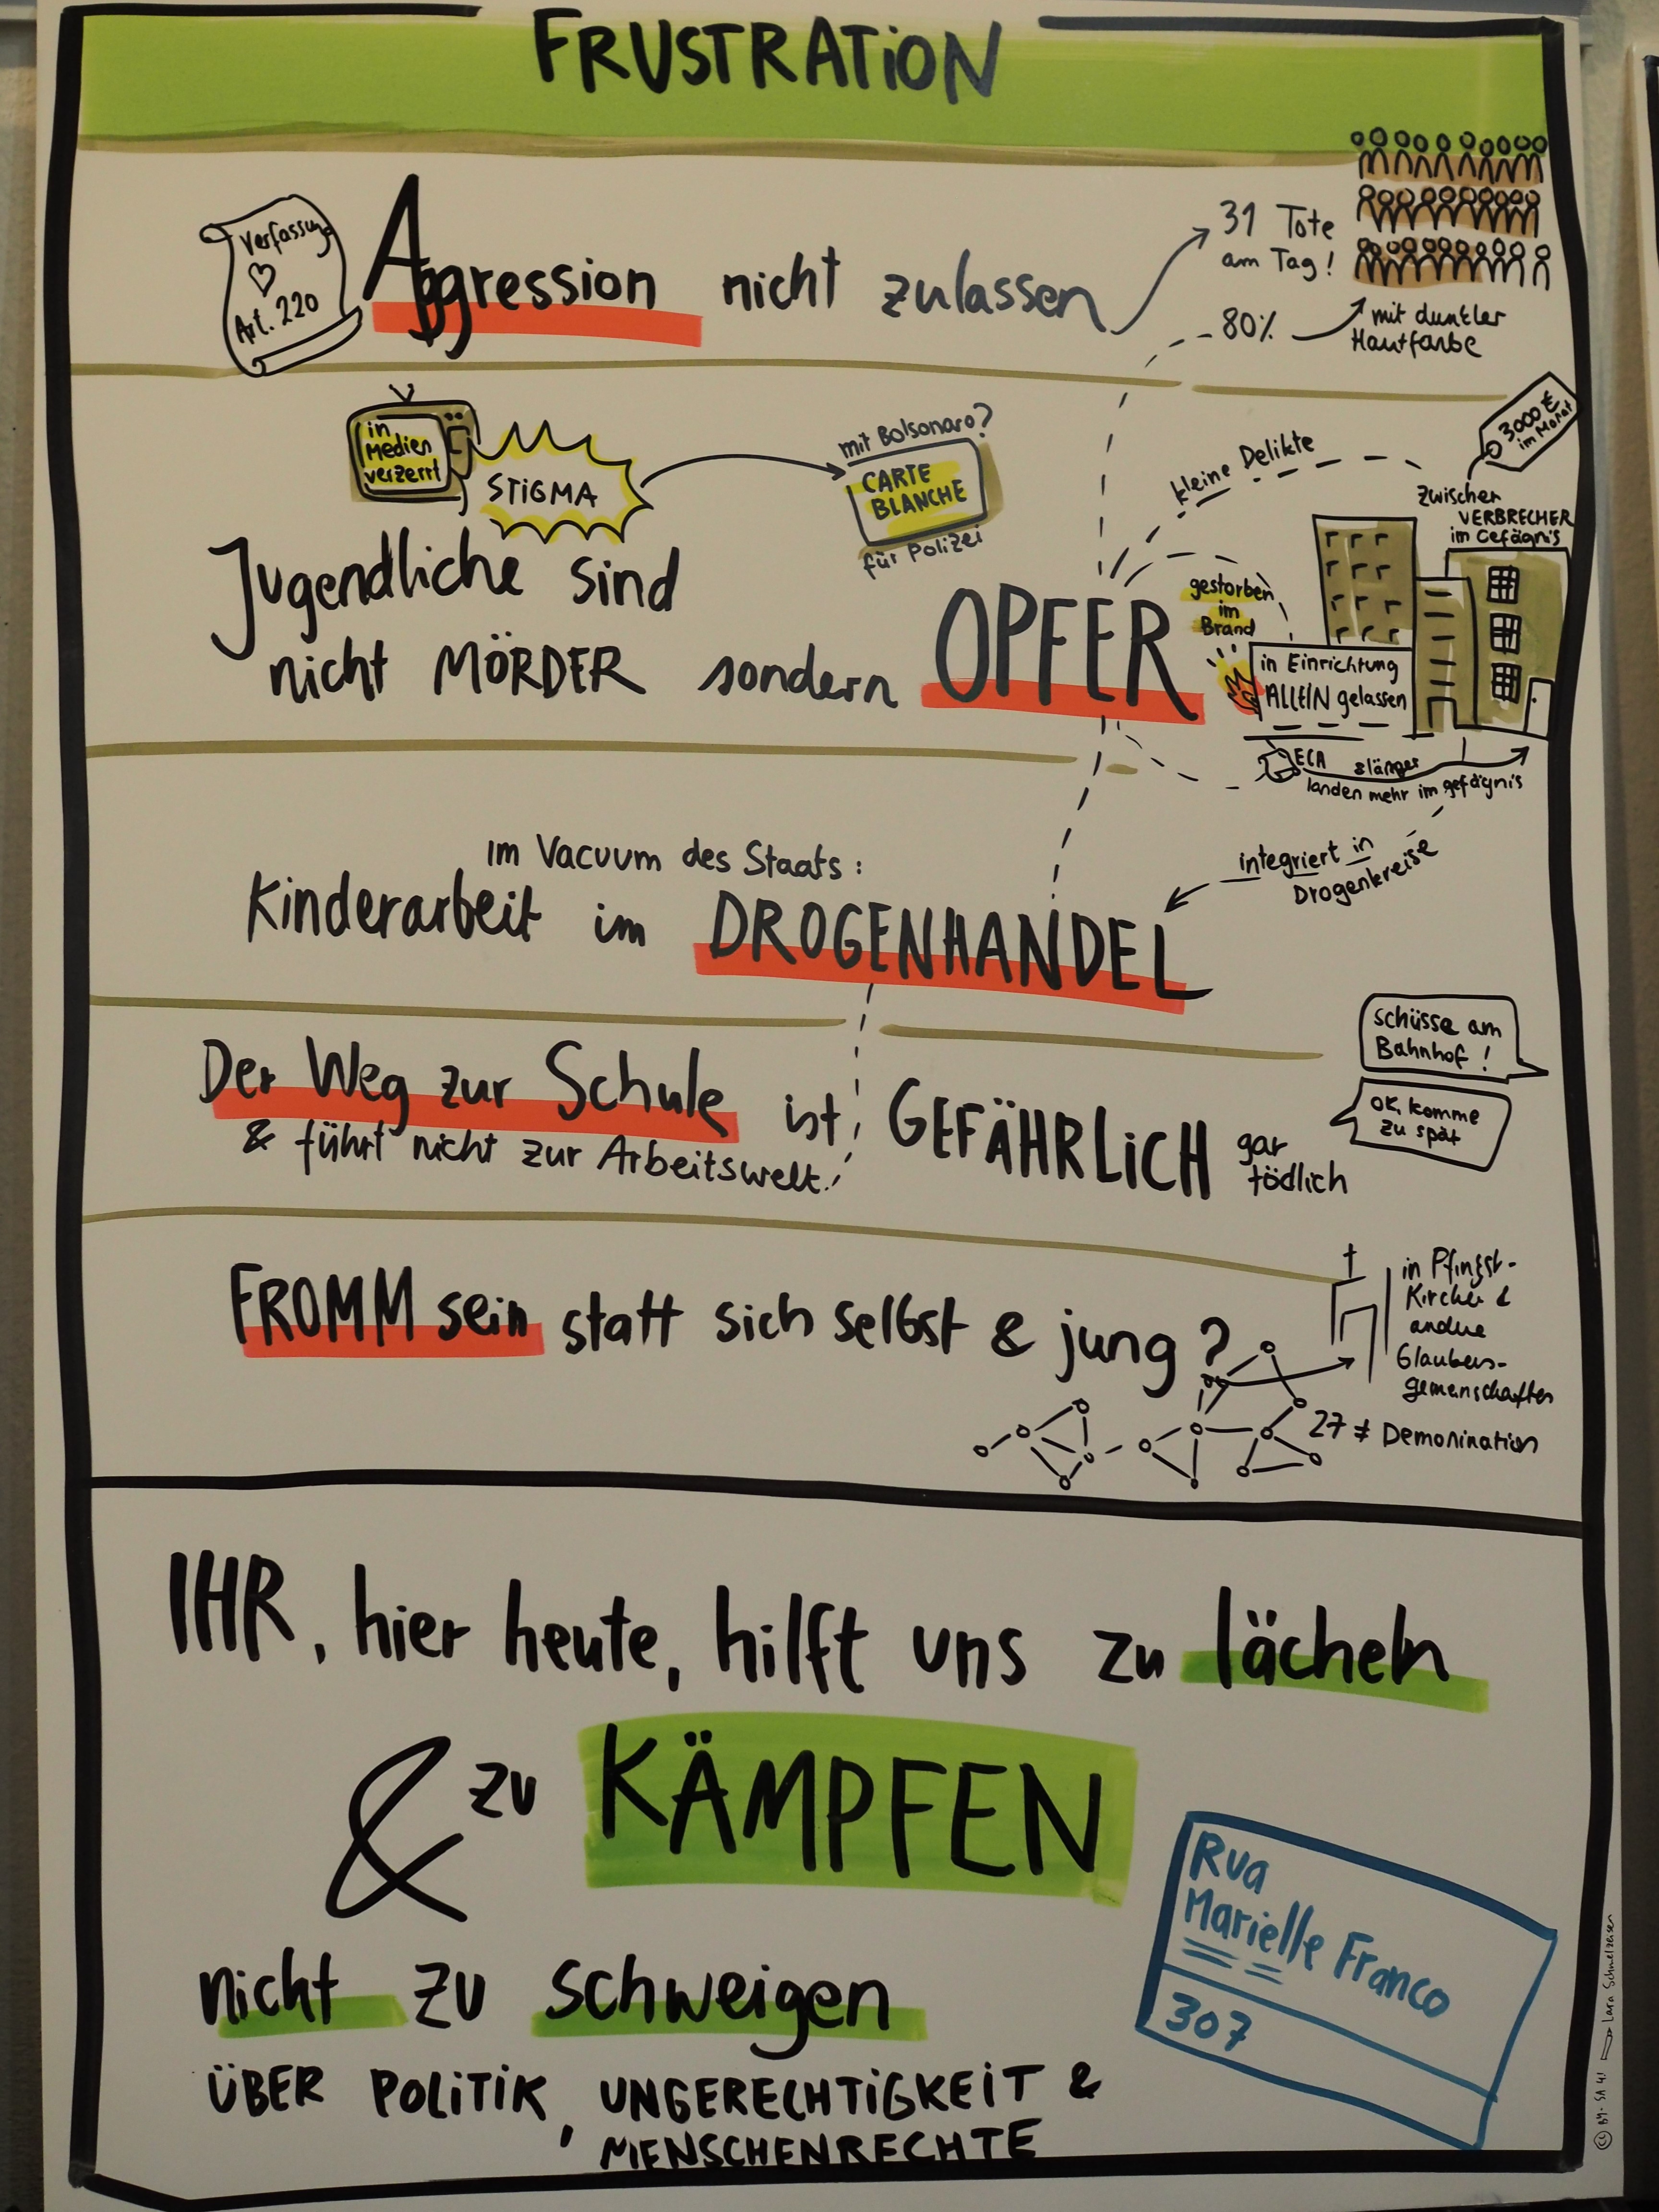 FRUSTRATiON
Verfassung
Art. 220
Aggression nicht zulassen
31 Tote
am Tag!
80%
mit dunkler
Hautfarbe
in
Medien
verzerrt
STiGMA
mit Bolsonaro?
CARTE
BLANCHE
für Polizei
kleine Delikte
3000 €
im Monat
zwischen
VERBRECHER
im Gefägnis
Jugendliche sind
nicht MÖRDER sondern OPFER
gestorben
im
Brand
in Einrichtung
ALLEIN gelassen
ECA
länger
landen mehr im gefägnis
integriert in
Drogenkreise
im Vacuum des Staats:
Kinderarbeit im DROGENHANDEL
Der Weg zur Schule ist GEFÄHRLiCH gar
tödlich
& führt nicht zur Arbeitswelt!
Schüsse am
Bahnhof!
OK, komme
zu spät
FROMM sein statt sich selbst & jung?
in Pfingst-
Kirche &
andere
Glaubens-
gemeinschaften
27 ≠ Demonination
IHR, hier heute, hilft uns zu lächeln
& zu KÄMPFEN
nicht zu schweigen
ÜBER POLiTiK, UNGERECHTiGKEiT &
MENSCHENRECHTE
Rua
Marielle Franco
307
BY-SA 4! Lara Schmelzeisen